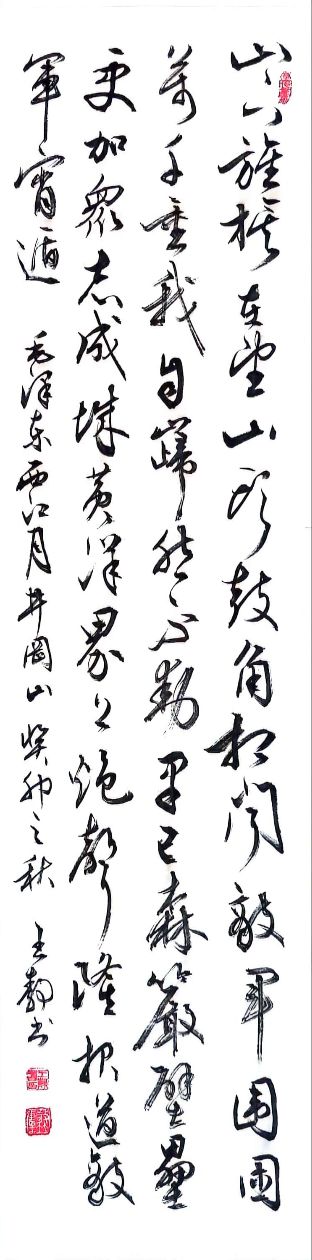 山下旌旗在望山头鼓角相闻敵军围困
万千重我自巋然不動早已森嚴壁壘
更加眾志成城黄洋界上炮聲隆报道敵
軍宵遁 毛泽东西江月井岡山 癸卯之秋 王静书